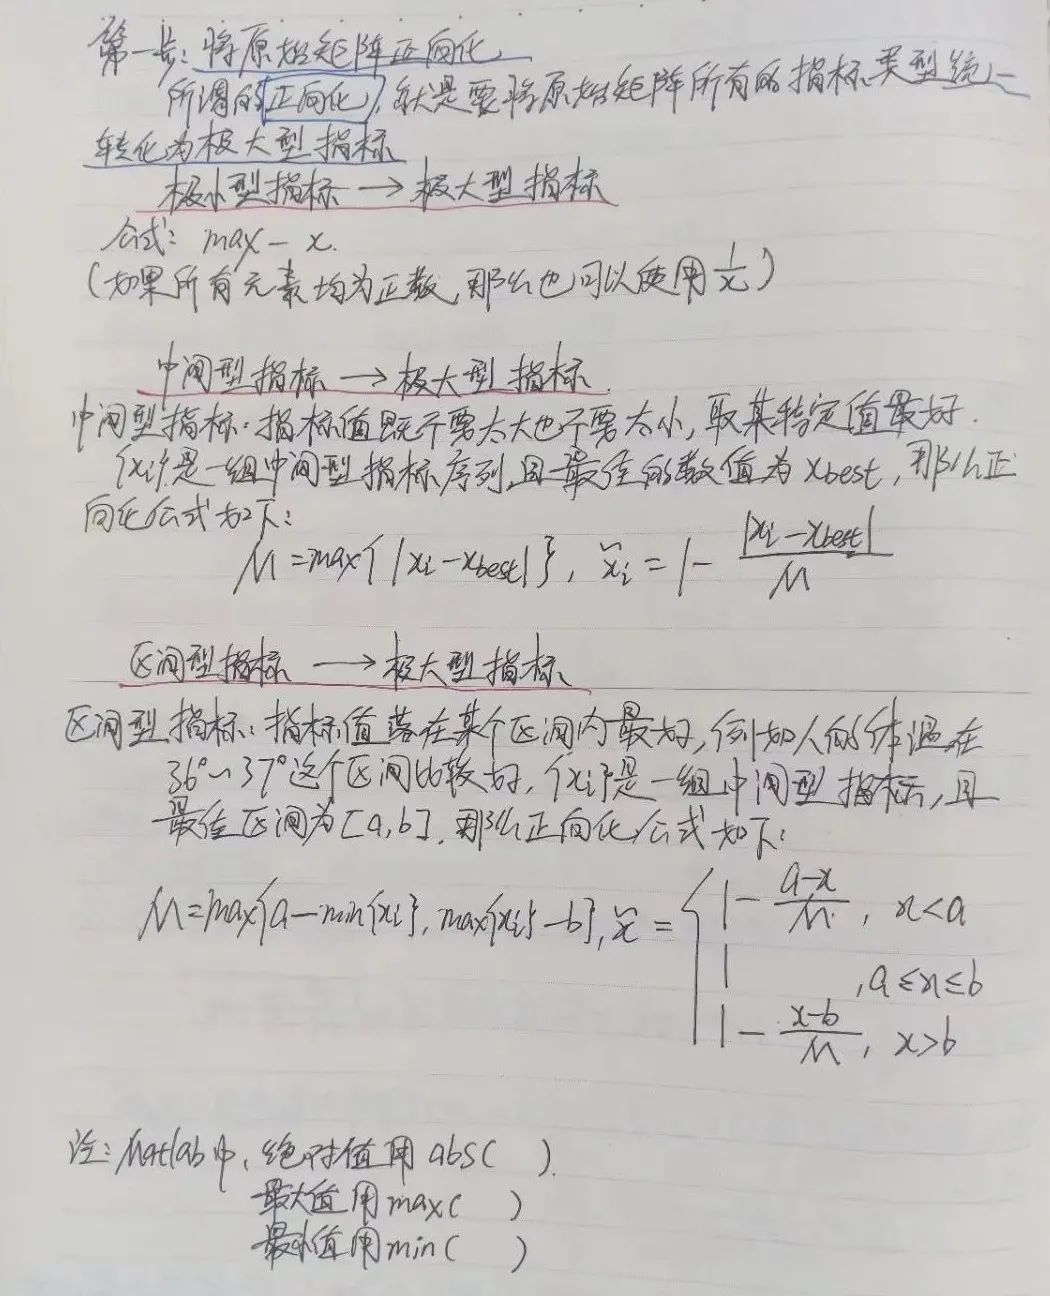 第一步：将原始矩阵正向化
所谓的正向化，就是要将原始矩阵所有的指标类型统一
转化为极大型指标
极小型指标 → 极大型指标
公式：max - x.
(如果所有元素均为正数，那么也可以使用 1/x)
中间型指标 → 极大型指标.
中间型指标：指标值既不要太大也不要太小，取某特定值最好.
{xi}是一组中间型指标序列，且最佳的数值为xbest，那么正
向化公式如下：
M = max{|xi - xbest|}, x̃i = 1 - |xi - xbest| / M
区间型指标 → 极大型指标
区间型指标：指标值落在某个区间内最好，例如人的体温在
36°~37°这个区间比较好，{xi}是一组中间型指标，且
最佳区间为[a,b]，那么正向化公式如下：
M = max{a - min{xi}, max{xi} - b}, x̃ = { 1 - (a-x)/M, x<a
1, a≤x≤b
1 - (x-b)/M, x>b
注：Matlab中，绝对值用 abs( ).
最大值用max( )
最小值用min( )